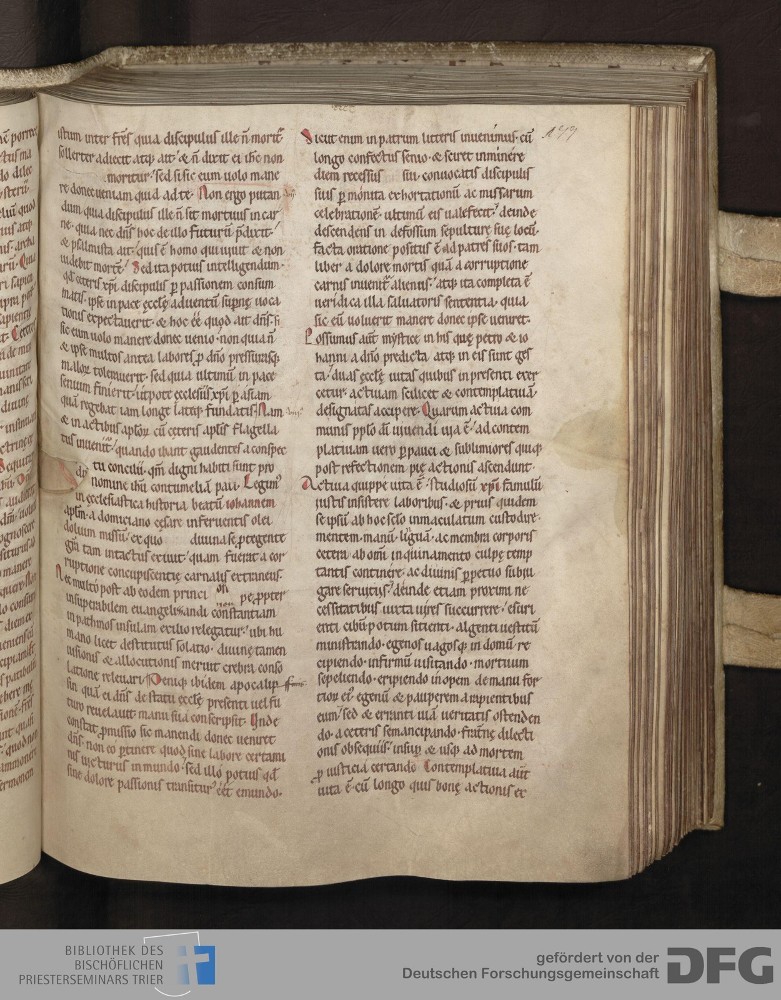 istum inter frēs quia discipulus ille ñ morit᷑
sollerter adiecit atq; ait · & ñ dixit ei ihc non
moritur · sed si sic eum uolo mane
re donec ueniam quid ad te · Non ergo putan
dum quia discipulus ille ñ sit mortuus in car
ne · quia nec dñs hoc de illo futurū p̄dixit ·
& psalmista ait · quis ē homo qui uiuit & non
uidebit mortē · Sed ita potius intelligendum ·
qđ ceteris xp̄i discipulis p passionem consum
matis · ipse in pace ęcclę aduentū supnę uoca
tionis expectauerit · & hoc ēē quod ait dñs · si
sic eum uolo manere donec uenio · non quia ñ
& ipse multos antea labores p dño pressurasq;
maloꝝ tolerauerit · sed quia ultimū in pace
senium finierit · utpote ecclesiis xp̄i p asiam
quā regebat iam longe lateq; fundatis · Nam
& in actibus aplōꝝ cū ceteris aplīs flagella
tus inuenit᷑ · quando ibant gaudentes a conspec
tu concilii · qm̄ digni habiti sunt pro
nomine ihu contumeliā pati · Legim᷒
in ęcclesiastica historia beatū iohannem
aplm̄ · a domiciano cesare in feruentis olei
dolium missū · ex quo diuina se ptegente
gr̄a tam intactus exiuit · quam fuerat a cor
ruptione concupiscentię carnalis extraneus ·
Nec multo post ab eodem principe ppter
insuperabilem euangelizandi constantiam
in pathmos insulam exilio relegatur · ubi hu
mano licet destitutus solatio · diuinę tamen
uisionis & allocutionis meruit crebra conso
latione releuari · Deniq; ibidem apocalip
sin quā ei dñs de statu ecclę presenti uel fu
turo reuelauit manu sua conscripsit · Unde
constat pmissio sic manendi donec ueniret
dñs · non eo ptinere quod sine labore certami
nis uicturus in mundo · sed illo potius qđ
sine dolore passionis transitur᷒ eēt e mundo ·
Sicut enim in patrum litteris inuenimus · cū
longo confectus senio · & sciret inminere
diem recessus sui · conuocatis discipulis
suis p monita exhortationū ac missarum
celebrationē · ultimū eis ualefecit · deinde
descendens in defossum sepulturę suę locū ·
facta oratione positus ē ad patres suos · tam
liber a dolore mortis quā a corruptione
carnis inuenit᷑ alienus · atq; ita completa ē
ueridica illa saluatoris sententia · quia
sic eū uoluerit manere donec ipse ueniret ·
Possumus aūt mystice in his quę petro & io
hanni a dño predicta · atq; in eis sunt ges
ta · duas ęcclę uitas quibus in presenti exer
cetur · actiuam scilicet & contemplatiuā ·
designatas accipere · Quarum actiua com
munis pplo dī uiuendi uia ē · ad contem
platiuam uero p pauci & sublimiores quiq;
post refectionem pię actionis ascendunt ·
Actiua quippe uita ē · studiosū xp̄i famulū
iustis insistere laboribus · & prius quidem
se ipsū ab hoc sēlo inmaculatum custodire ·
mentem · manū · linguā · ac membra corporis
cetera · ab omī inquinamento culpę temp
tantis continere · ac diuinis ppetuo subiu
gare seruitiis · deinde etiam proximi ne
cessitatibus iuxta uires succurrere · esuri
enti cibū · potum sitienti · algenti uestitū
ministrando · egenos uagosq; in domū re
cipiendo · infirmū uisitando · mortuum
sepeliendo · eripiendo inopem de manu for
tioꝝ ei᷒ · egenū & pauperem a rapientibus
eum · sed & erranti uiā ueritatis ostenden
do · a ceteris semancipando · fraternę dilecti
onis obsequiis · insup & usq; ad mortem
p iusticia certando · Contemplatiua aūt
uita ē · cū longo quis bonę actionis ex
BIBLIOTHEK DES
BISCHÖFLICHEN
PRIESTERSEMINARS TRIER
gefördert von der
Deutschen Forschungsgemeinschaft
DFG